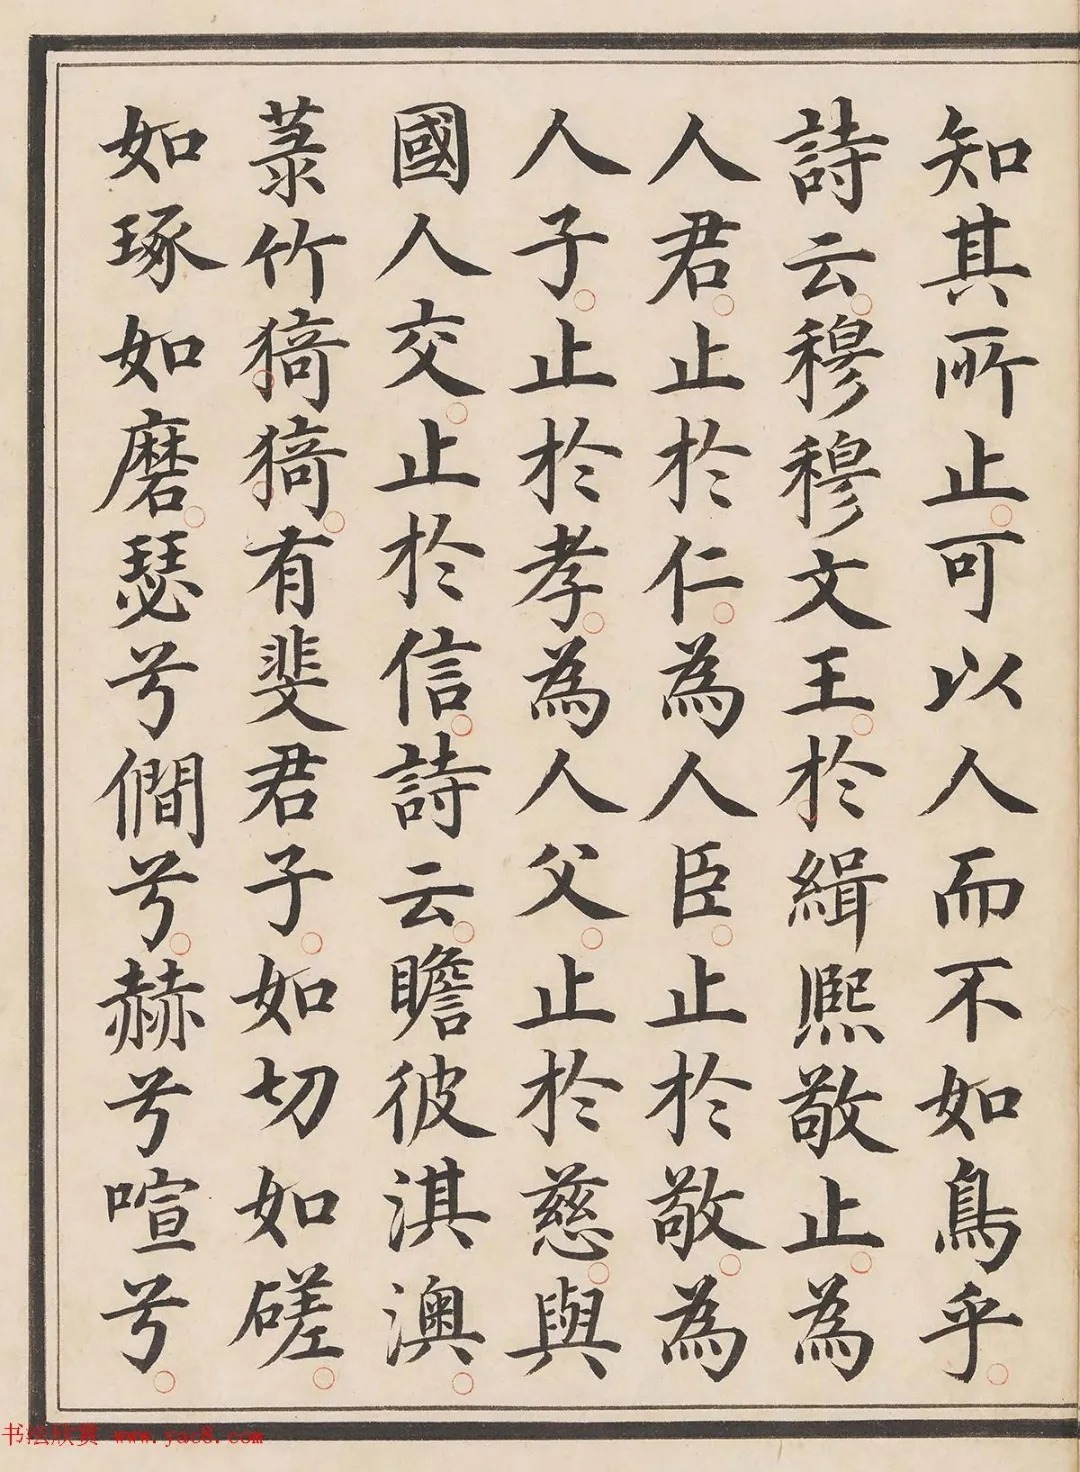 知其所止可以人而不如鳥乎
詩云穆穆文王於緝熙敬止為
人君止於仁為人臣止於敬為
人子止於孝為人父止於慈與
國人交止於信詩云瞻彼淇澳
菉竹猗猗有斐君子如切如磋
如琢如磨瑟兮僩兮赫兮喧兮
书法欣赏 www.yac8.com